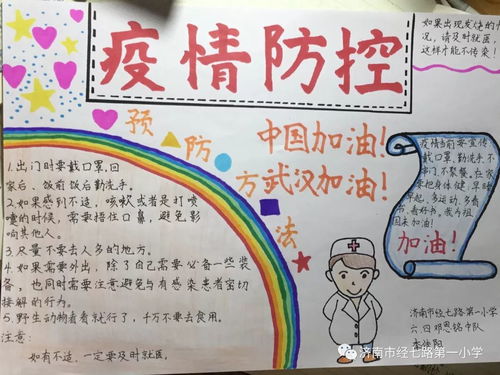 疫情防控
如果出现发烧的情
况，请及时就医，
这样才能不传染！
预防方法
中国加油！
武汉加油！
1.出门时要戴口罩,回
家后、饭前饭后勤洗手。
2.如果感到不适，咳嗽或者是打喷
嚏的时候，需要捂住口鼻，避免影
响其他人。
3.尽量不要去人多的地方。
4.如果需要外出，除了自己需要必备一些装
备，也同时需要注意避免与有感染患者密切
接解的行为。
5.野生动物看看就行了，千万不要去食用。
注意：
如有不适，一定要及时就医。
疫情当前要宣传
戴口罩,勤洗手,不
串门 不聚餐。在家
要把身体健,早睡
早起、多运动,多看
书、看好书,我为祖
国来加油！
加油！
济南市经七路第一小学
六.四邓恩铭中队
李佳阳
济南市经七路第一小学